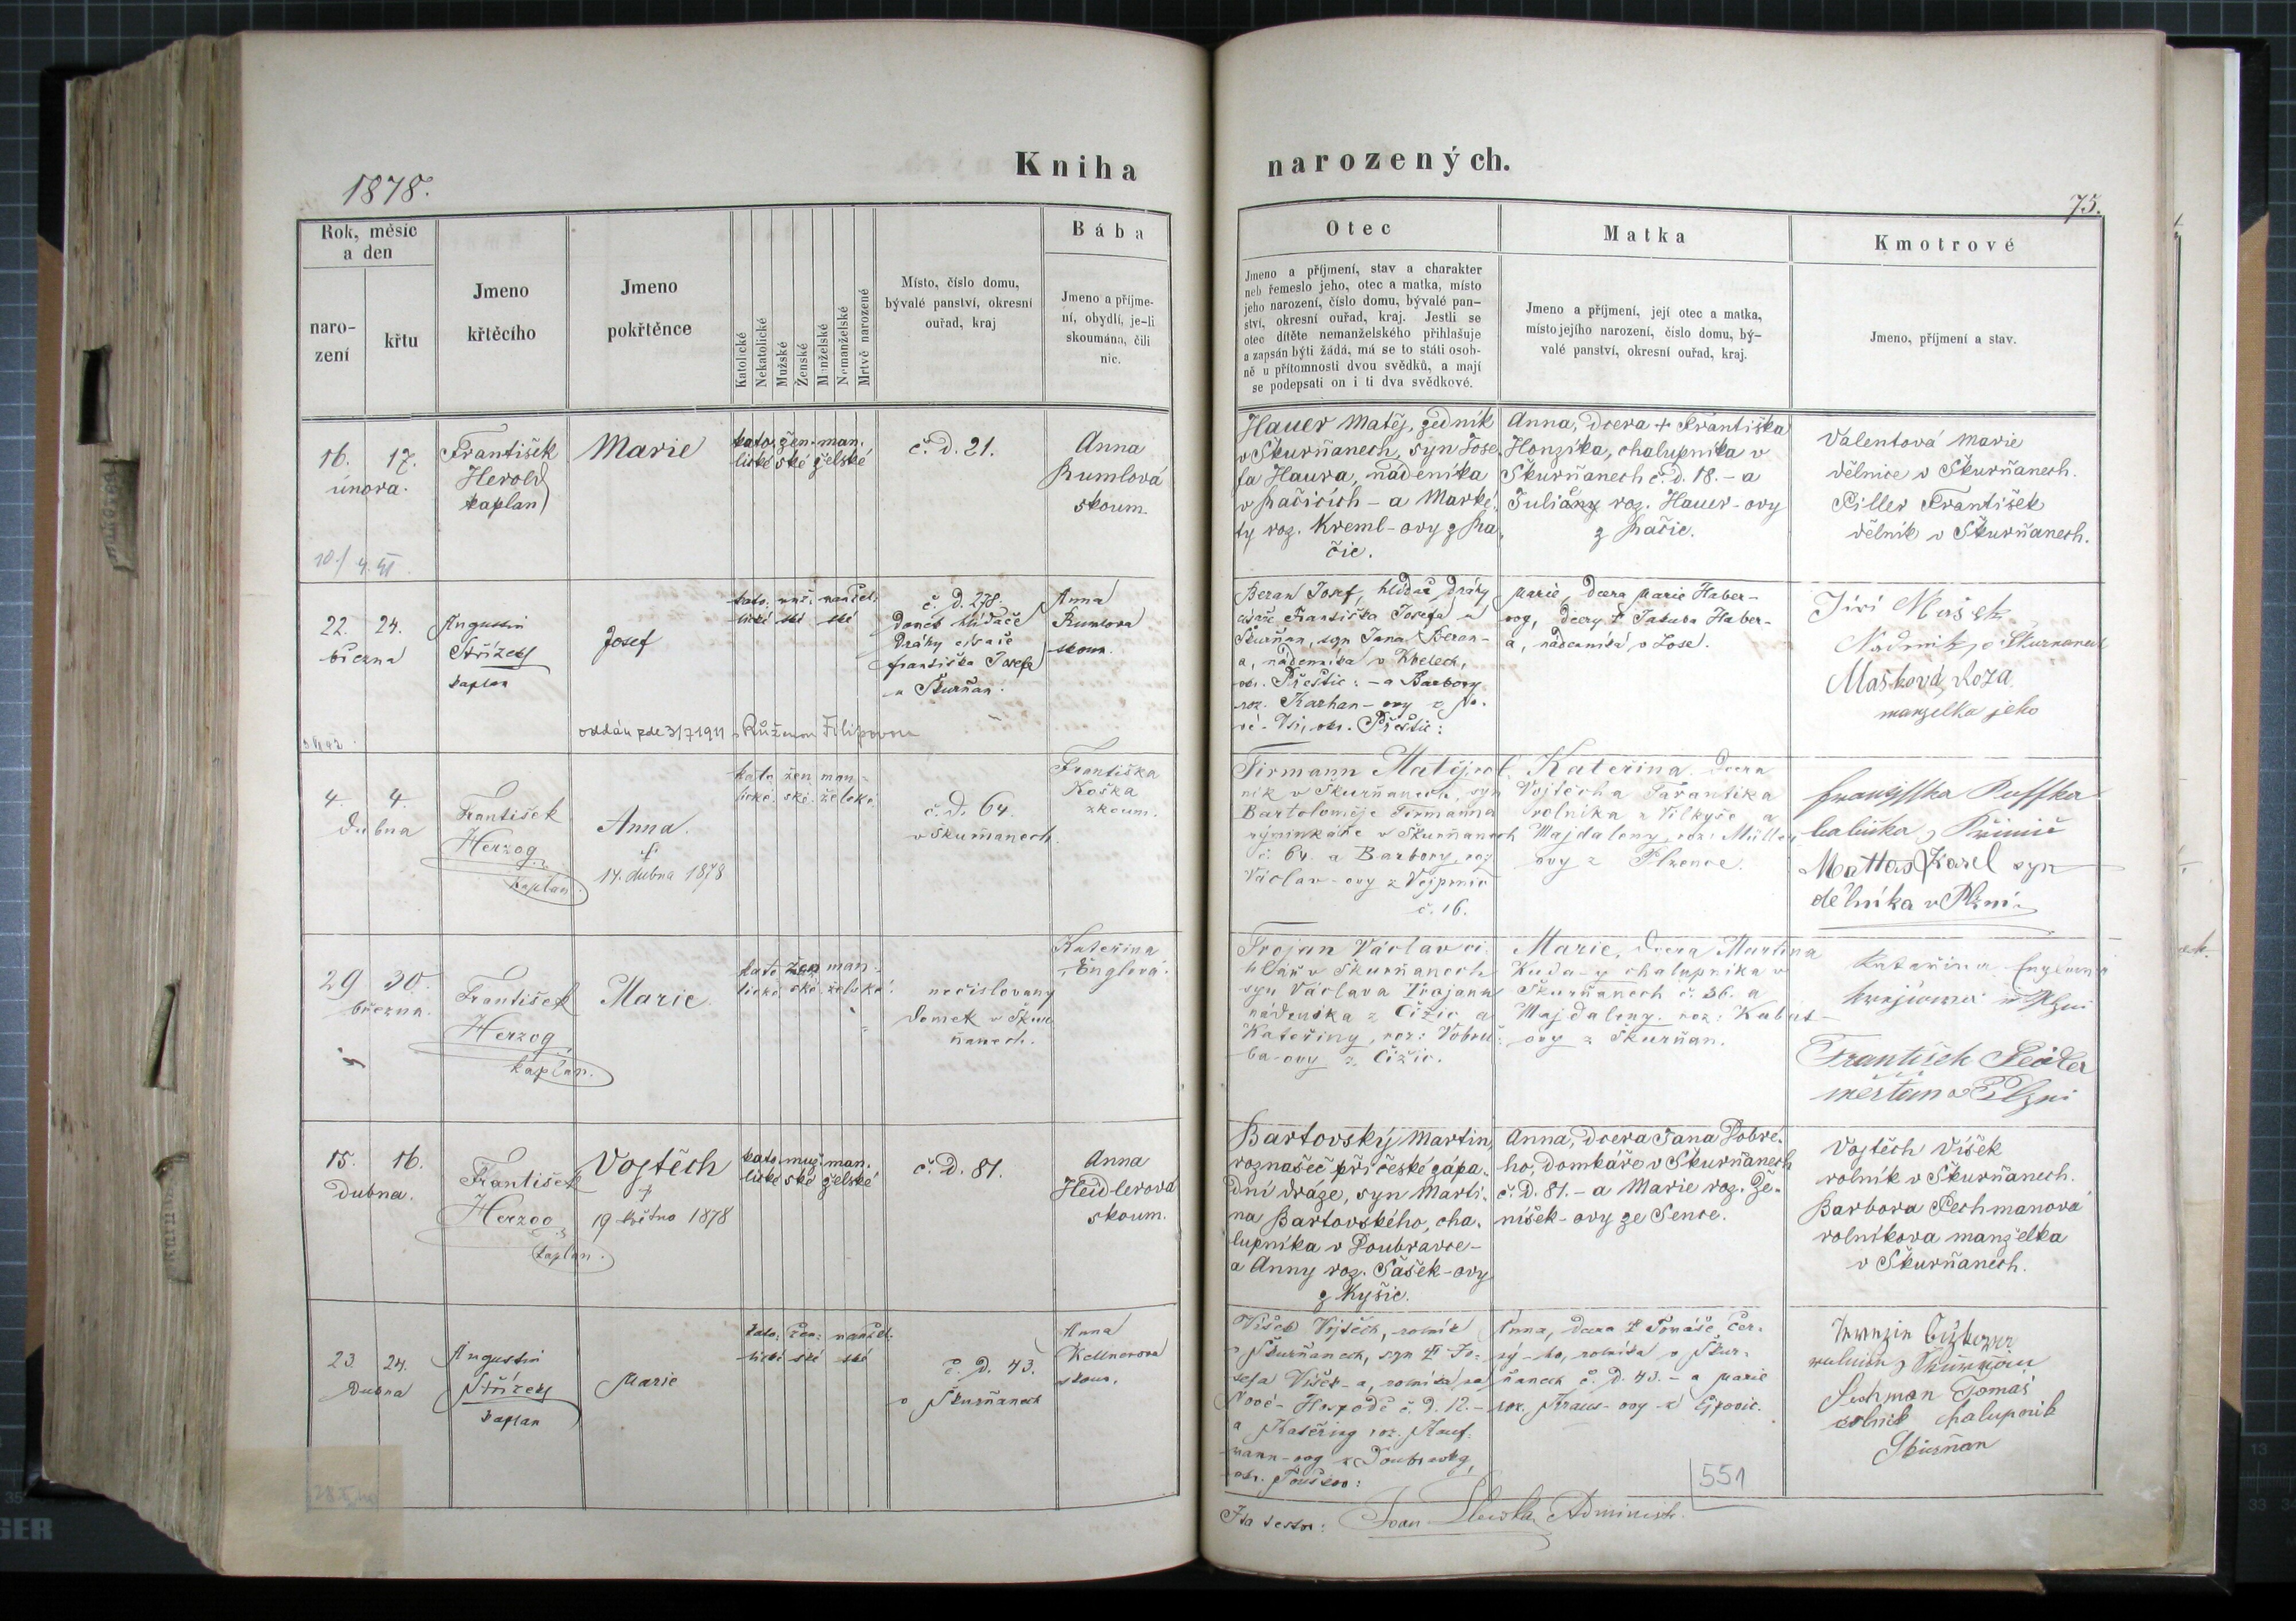 Kniha
narozených.
1878.
75.
Rok, měsíc
a den
naro-
zení
křtu
Jmeno
křtěcího
Jmeno
pokřtěnce
Katolické
Nekatolické
Mužské
Ženské
Manželské
Nemanželské
Mrtvě narozené
Místo, číslo domu,
bývalé panství, okresní
ouřad, kraj
Bába
Jmeno a příjme-
ní, obydlí, je-li
skoumána, čili
nic.
Otec
Jmeno a příjmení, stav a charakter
neb řemeslo jeho, otec a matka, místo
jeho narození, číslo domu, bývalé pan-
ství, okresní ouřad, kraj. Jestli se
otec dítěte nemanželského přihlašuje
a zapsán býti žádá, má se to státi osob-
ně u přítomnosti dvou svědků, a mají
se podepsati on i ti dva svědkové.
Matka
Jmeno a příjmení, její otec a matka,
místo jejího narození, číslo domu, bý-
valé panství, okresní ouřad, kraj.
Kmotrové
Jmeno, příjmení a stav.
16. 17.
února.
František
Herold
kaplan
Marie
kato. žen. man.
lické ské želské
č. d. 21.
Anna
Rumlová
skoum.
Hauer Matěj, zedník
v Škurňanech, syn Jose
fa Haura, nádeníka
v Račicích - a Marké.
ty roz. Kreml-ovy z Ra.
čic.
Anna, dcera + Františka
Honzíka, chalupníka v
Škurňanech č. d. 18. - a
Juliány roz. Hauer-ovy
z Račic.
Valentová Marie
dělnice v Škurňanech.
Piller František
dělník v Škurňanech.
22. 24.
března
Augustin
Střízek
kaplan
Josef
kato: muž: manžel:
lické ské ské
č. d. 278.
Domek hlídače
Dráhy císaře
Františka Josefa
u Škurňan.
Anna
Rumlova
skoum.
oddán zde 31/7 1911 s Růženou Filipovou
Beran Josef, hlídač dráhy
císaře Františka Josefa u
Škurňan, syn Jana Beran-
a, nádenníka v Kbelech,
okr. Přeštic: - a Barbory
roz. Karhan-ovy z No-
vé-Vsi, okr. Přeštic:
Marie, dcera Marie Haber-
ovy, dcery + Jakuba Haber-
a, nádenníka v Lose.
Jiří Mašek
Nadenik, v Škurnanech
Mašková Roza
manzelka jeho
4. 4.
Dubna
František
Herzog
kaplan
Anna.
†
14. dubna 1878
kato žen man-
lické. ské. želské.
č. d. 64.
v Škurňanech.
Františka
Koška
zkoum.
Tirmann Matěj, rol.
ník v Škurňanech, syn
Bartoloměje Tirmanna
výminkáře v Škurňanech
č. 64. a Barbory, roz
Václav-ovy z Vejprnic
č. 16.
Kateřina. dcera
Vojtěcha Tarantíka
rolníka z Vilkyše a
Majdaleny, roz: Müller
ovy z Plzence.
Mattas Karel syn
dělníka v Plzni.
29 30.
března.
František
Herzog
kaplan.
Marie.
kato žen man-
lické. ské. želské.
nečíslovaný
domek v Škur
ňanech.
Kateřina
Englová.
Trojan Václav ci.
hlář v Škurňanech
syn Václava Trojana
nádenka z Čižic a
Kateřiny, roz: Vobru-
ba-ovy z Čižic.
Marie, dcera Martina
Kuda-y chalupníka v
Škurňanech č. 36. a
Majdaleny. roz: Kabát-
ovy z Škurňan.
Kateřina Englowa
František Pedler
měšťan v Plzni
15. 16.
Dubna.
František
Herzog
kaplan.
Vojtěch
†
19 května 1878
kato. muž. man.
lické ské želské
č. d. 81.
Anna
Heidlerová
skoum.
Bartovský Martin,
roznašeč při české zápa.
dní dráze, syn Marti.
na Bartovského, cha.
lupníka v Doubravce-
a Anny roz. Sašek-ovy
z Kyšic.
Anna, dcera Jana Dobré-
ho, domkáře v Škurňanech
č. d. 81. - a Marie roz. Že-
níšek-ovy ze Sence.
Vojtěch Víšek
rolník v Škurňanech.
Barbora Pechmanová
rolníkova manželka
v Škurňanech.
23. 24.
Dubna
Augustin
Střízek
kaplan
Marie
kato: žen: manžel:
lické ské ské
č. d. 43.
v Škurňanech
Anna
Kellnerova
skoum.
Víšek Vojtěch, rolník
v Škurňanech, syn + Jo-
sefa Víšek-a, rolníka na
Nové-Hospodě č. d. 12. -
a Kateřiny roz. Kauf-
mann-ovy z Doubravky,
okr. Toušov:
Anna, dcera + Tomáše Čer-
ný-ho, rolníka v Škur-
ňanech č. d. 43. - a Marie
roz. Kraus-ovy z Ejpovic.
Tomáš
rolnik chalupnik
Skurňan
551
Ita testor: Joan Administ.